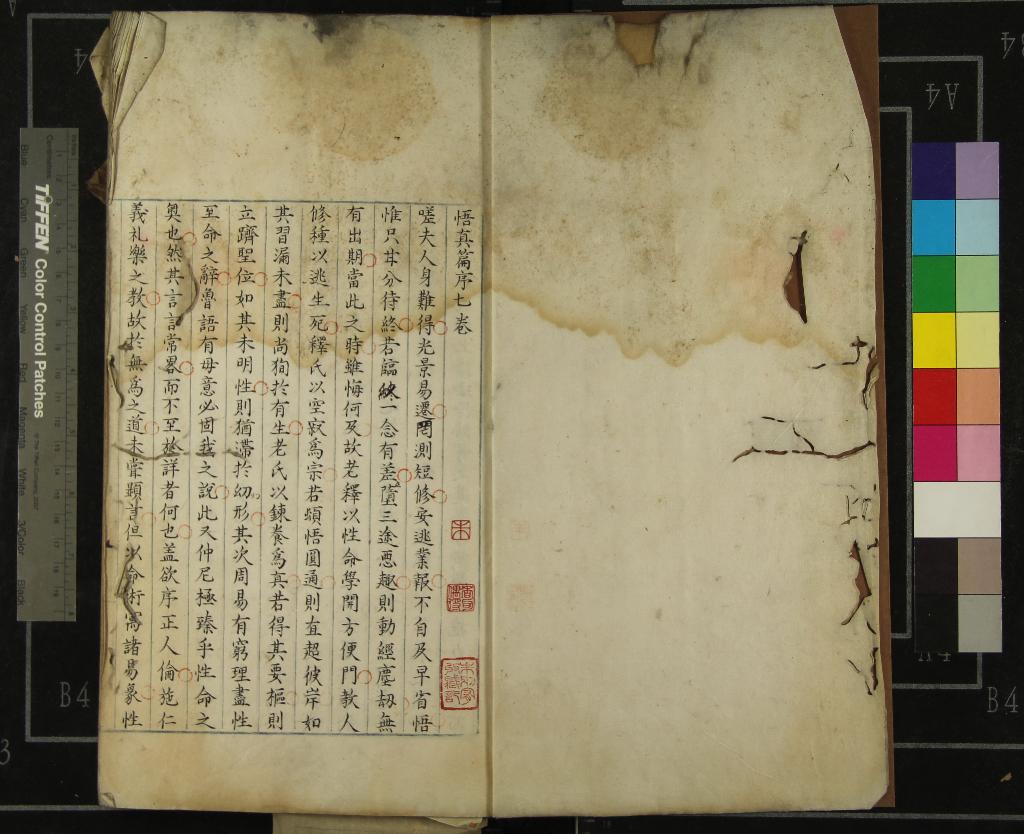 悟真篇序七卷
嗟夫人身難得光景易遷罔測短修安逃業報不自及早省悟
惟只甘分待終若臨終一念有差墮三途惡趣則動經塵劫無
有出期當此之時雖悔何及故老釋以性命學開方便門教人
修種以逃生死釋氏以空寂爲宗若頓悟圓通則直超彼岸如
其習漏未盡則尚徇於有生老氏以鍊養爲真若得其要樞則
立躋聖位如其未明性則猶滯於幻形其次周易有窮理盡性
至命之辭魯語有毋意必固我之說此又仲尼極臻乎性命之
奧也然其言言常畧而不至於詳者何也盖欲序正人倫施仁
義礼樂之教故於無爲之道未甞顯言但以命術寓諸易象性
B4
B4
A4
TIFFEN Color Control Patches
Blue
Cyan
Green
Yellow
Red
Magenta
White
3/Color
Black